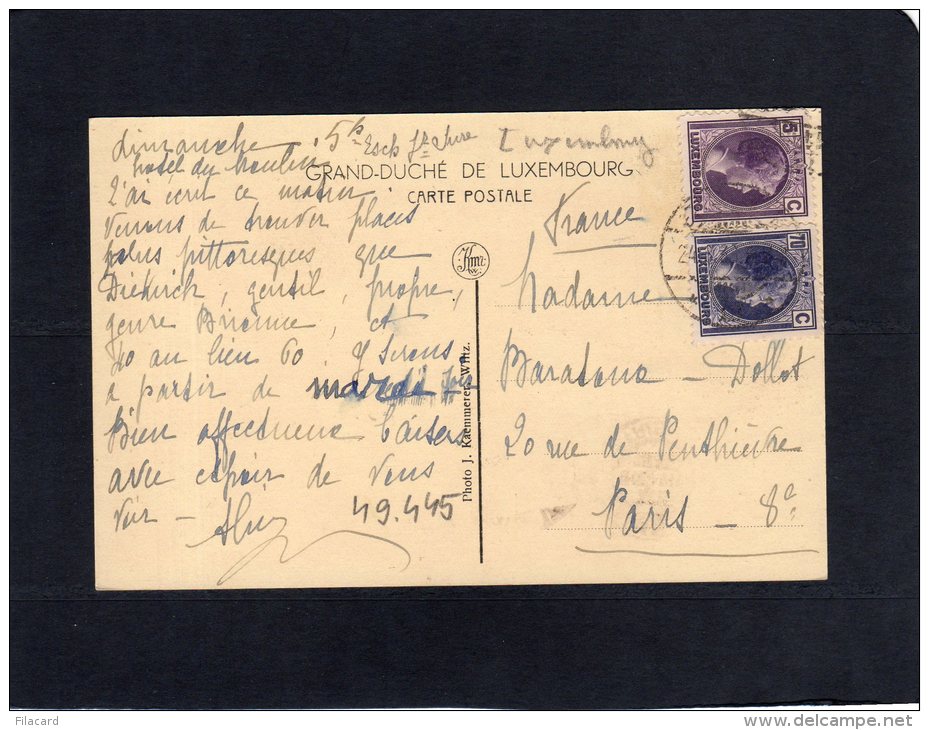 dimanche 5h
hotel du moulin
J'ai écrit ce matin
Venons de trouver places
plus pittoresques que
Diekirch, gentil, propre,
genre Brionne, et
40 au lieu 60. Y serons
a partir de mardi
Bien affectueux baisers
avec espoir de vous
voir -
49.445
Esch s/ Sure
Luxembourg
GRAND-DUCHÉ DE LUXEMBOURG
CARTE POSTALE
Photo J. Kaemmerer, Wiltz.
France
Madame
Baratona - Dollot
20 rue de Penthièvre
Paris - 8e
5 C
LUXEMBOURG
70 C
LUXEMBOURG
24
Filacard
www.delcampe.net